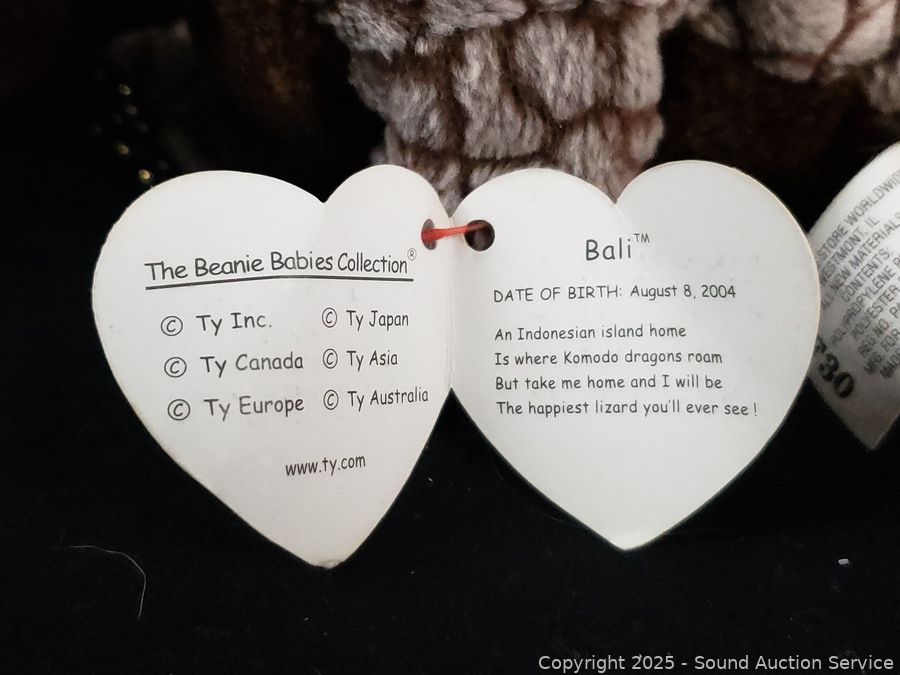 The Beanie Babies Collection®
© Ty Inc.
© Ty Canada
© Ty Europe
© Ty Japan
© Ty Asia
© Ty Australia
www.ty.com
Bali™
DATE OF BIRTH: August 8, 2004
An Indonesian island home
Is where Komodo dragons roam
But take me home and I will be
The happiest lizard you'll ever see !
WORLDWIDE
IL
NEW MATERIALS
CONTENTS
REG NO.
Copyright 2025 - Sound Auction Service